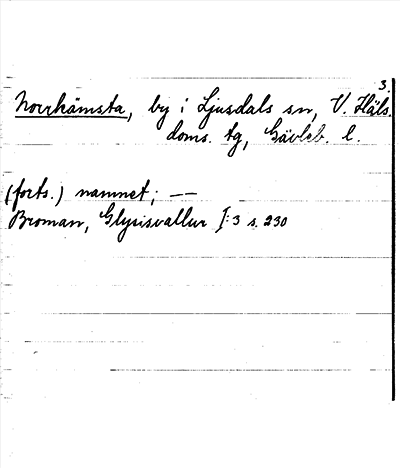 3.
Norrkämsta, by i Ljusdals sn, V. Häls.
doms. tg, Gävleb. l.
(forts.) namnet; —
Broman, Glysisvallur I:3 s. 230